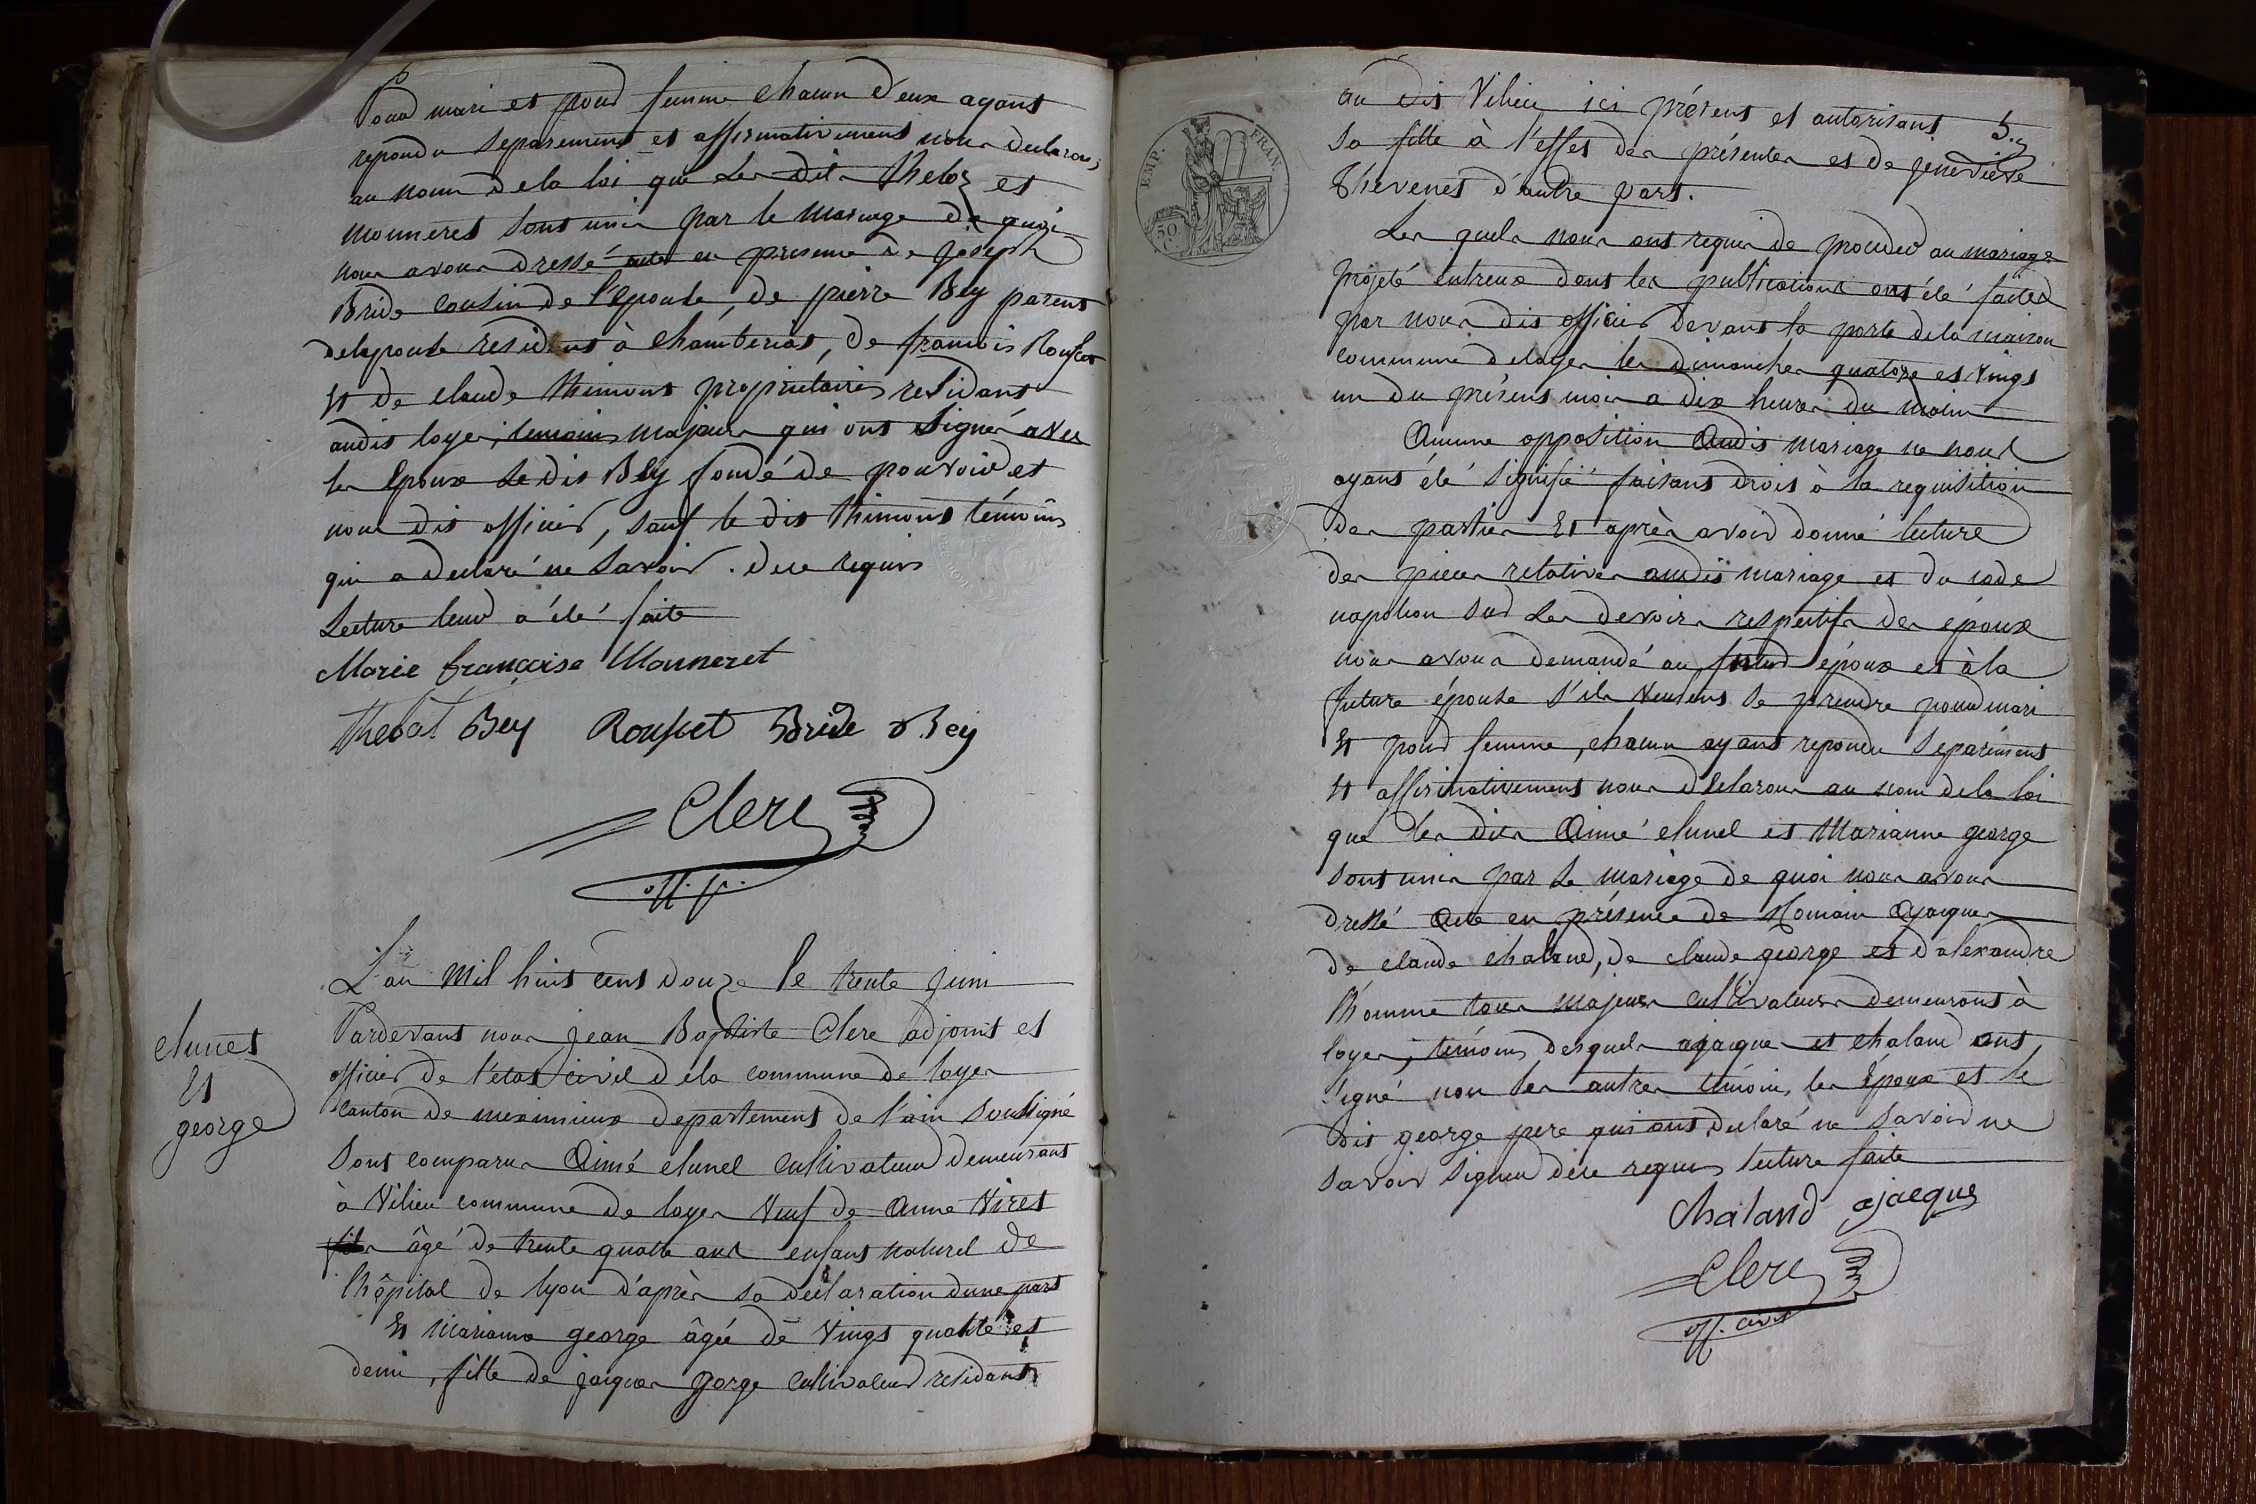 Pour mari et pour femme chacun d'eux ayant
repondu separement et affirmativement nous declarons
au nom de la loi que les dits theloz et
monneret sont unis par le mariage de quoi
nous avons dressé acte en presence de joseph
Bride cousin de l'epouse, de pierre Bey parent
delepouse résident à chamberiat, de francois Rousset
et de claude thimont proprietaires residant
audit loyes, temoins majeurs qui ont signé avec
les epoux le dit Bey fondé de pouvoir et
nous dit officier, sauf le dit thimont témoins
qui a declaré ne savoir. de ce requis
Lecture leur a été faite
Marie francoise Monneret
Bey Rousset Bride Bey
Clerc
off.
L'an mil huit cent douze le trente juin
Pardevant nous jean Baptiste Clerc adjoint et
officier de l'état civil dela commune de loyes
canton de meximieux departement de l'ain soussigné
Sont comparus Aimé clunet cultivateur demeurant
à Vilieu commune de loyes veuf de Anne Viret
clunet
et
george
âgé de trente quatre ans enfant naturel de
l'hôpital de lyon d'après sa déclaration dune part
Et marianne george âgée de vingt quatre et
demi, fille de jacques gorge cultivateur residant
au dit Vilieu ici présent et autorisant
5.
sa fille à l'effet des présentes et de jeneviève
thevenet d'autre part.
Les quels nous ont requis de proceder au mariage
projeté entreux dont les publications ont été faites
par nous dit officier devant la porte dela maison
commune deloyes les dimanches quatorze et vingt
un du présent mois a dix heures du matin
Aucune opposition audit mariage ne nous
ayant été signifié faisant droit à la requisition
des parties Et après avoir donné lecture
des pieces relatives audit mariage et du code
napoleon sur les devoirs respectifs des époux
nous avons demandé au futur époux et à la
future épouse s'ils veulent se prendre pour mari
et pour femme, chacun ayant repondu séparément
et affirmativement nous declarons au nom dela loi
que les dits Aimé clunet et Marianne george
sont unis par le mariage de quoi nous avons
dressé acte en présence de Romain ajacques
de claude chaland, de claude george et d'alexandre
thomme tous majeurs cultivateurs demeurant à
loyes, témoins desquels ajacques et chaland ont
signé non les autres témoins, les époux et le
dit george pere qui ont declaré ne savoir ne
savoir signer dece requis lecture faite
chaland ajacques
Clerc
off. civil
EMP. FRAN.
50
C.